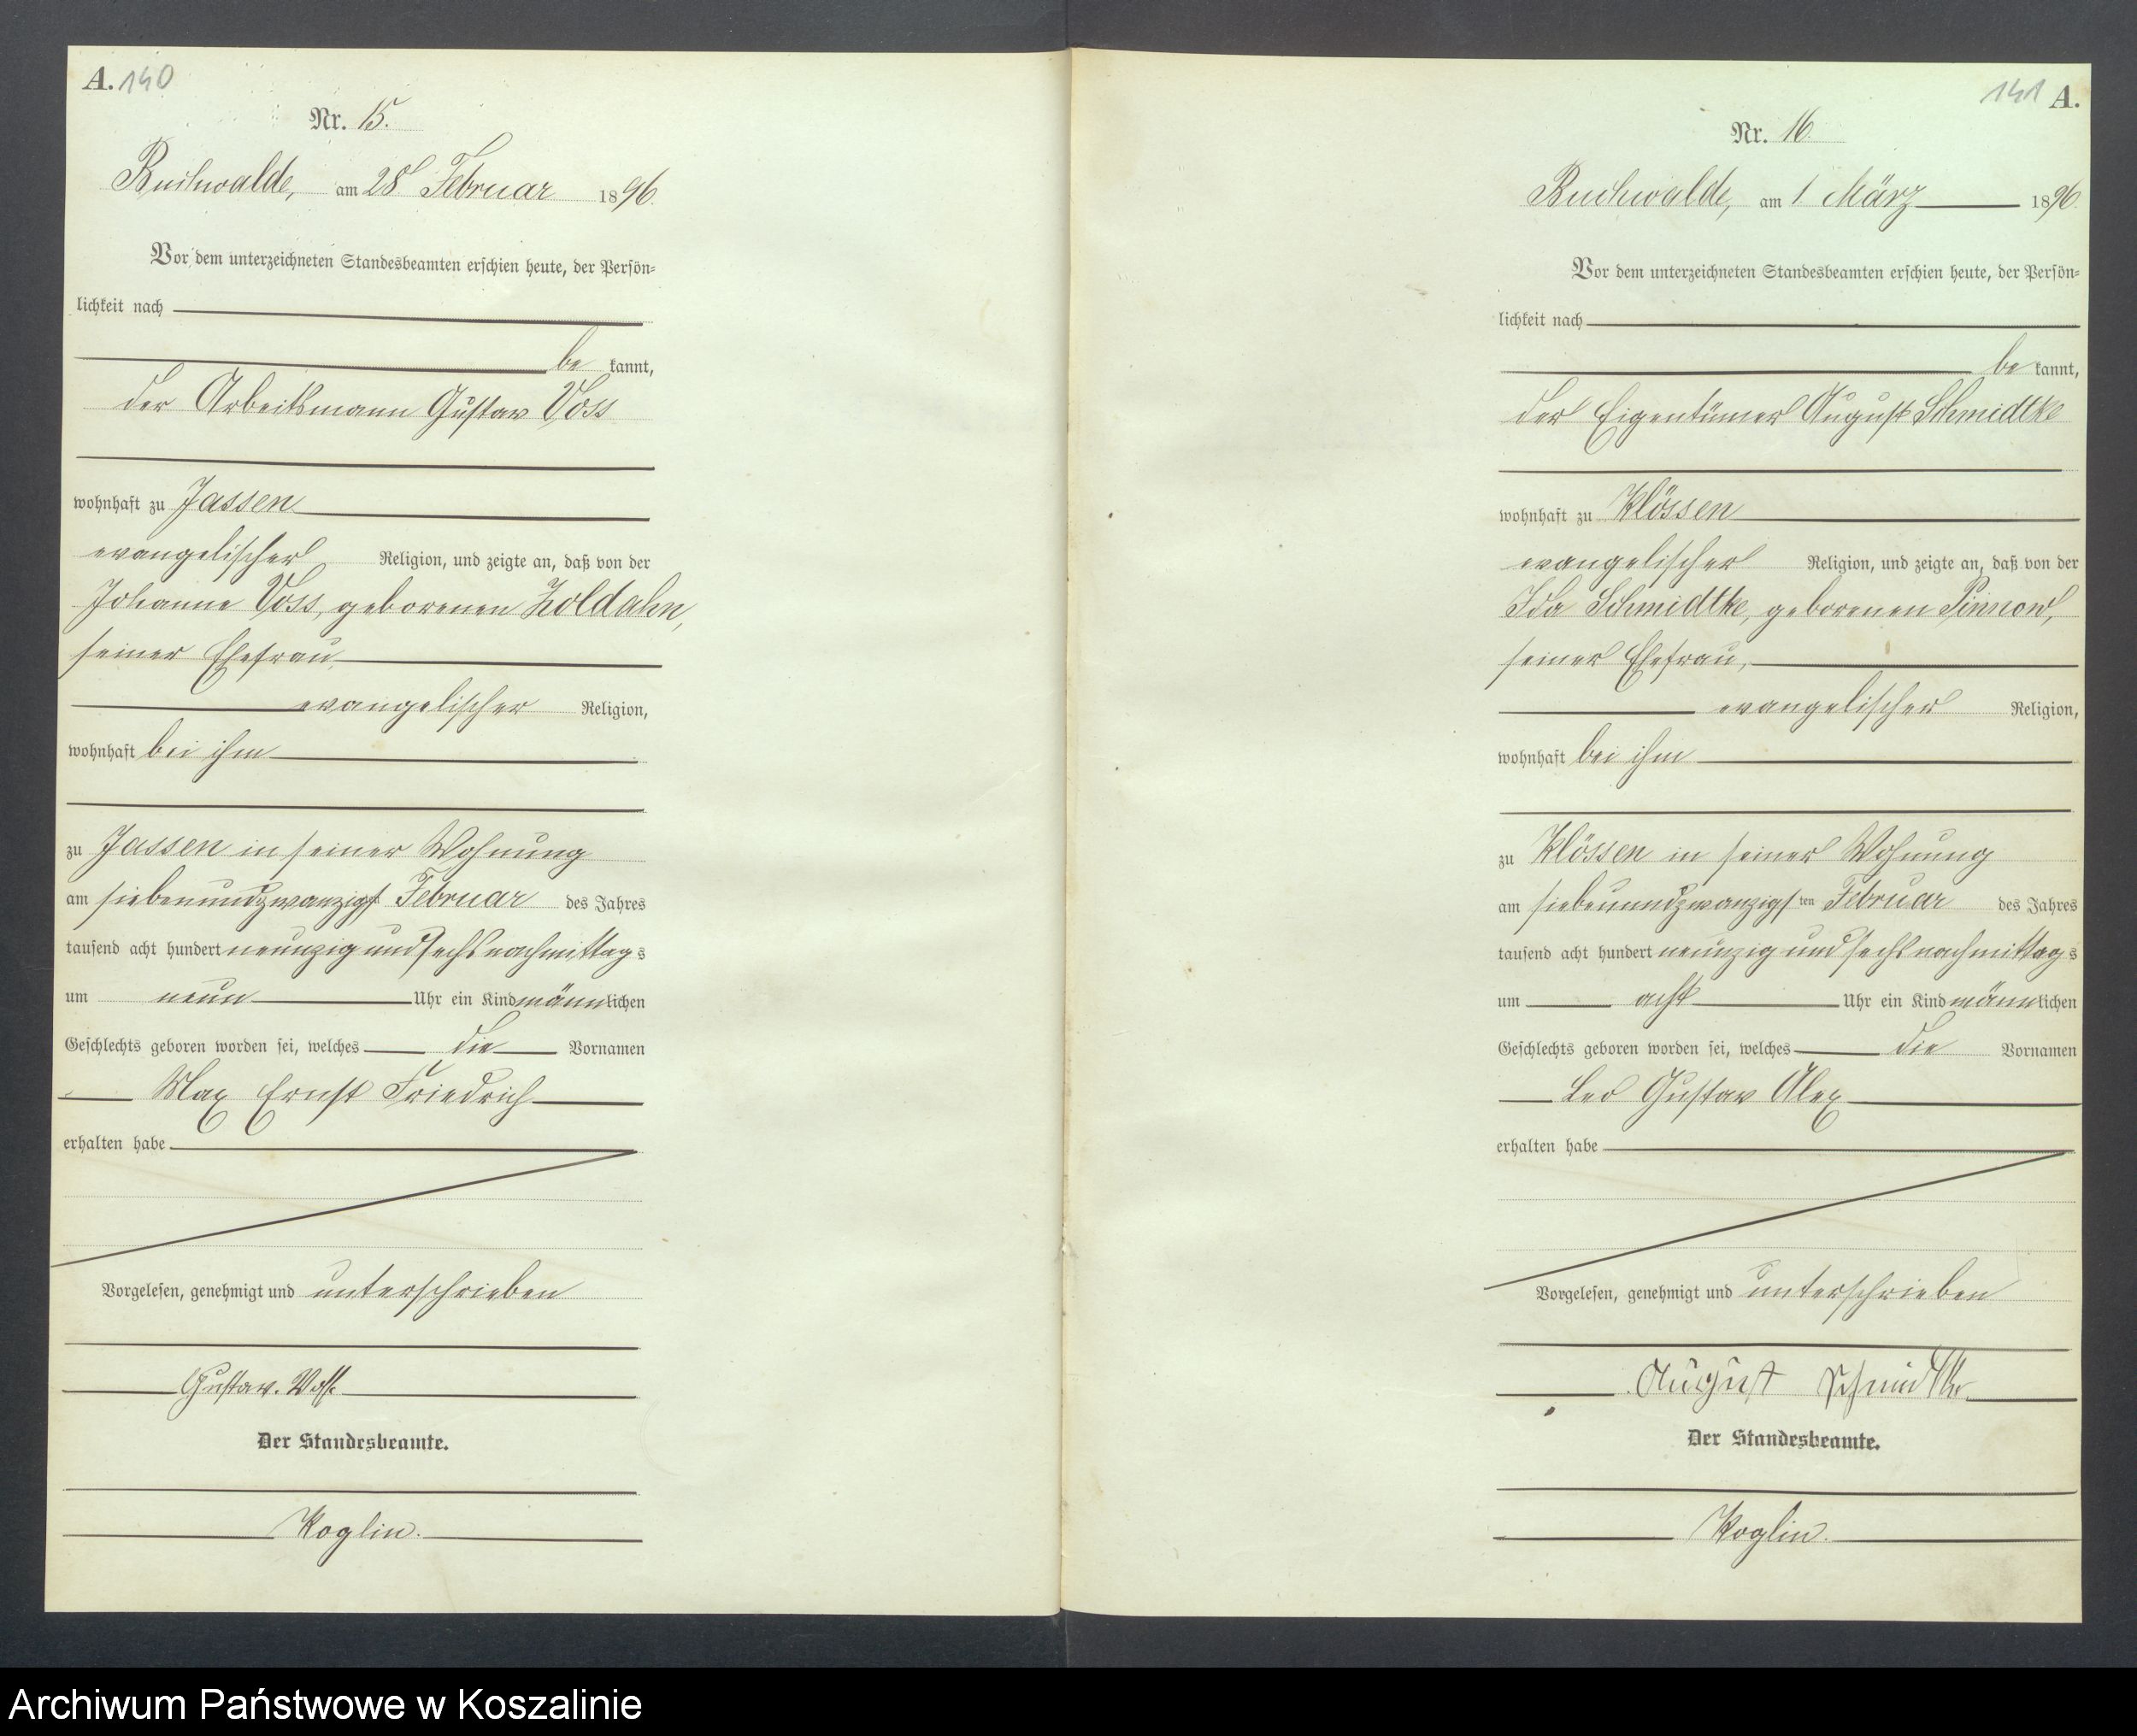 A. 140
Nr. 15.
Buchwalde, am 28. Februar 1896.
Vor dem unterzeichneten Standesbeamten erschien heute, der Persön=
lichkeit nach
be kannt,
der Arbeitsmann Gustav Voss
wohnhaft zu Jassen
evangelischer Religion, und zeigte an, daß von der
Johanne Voss, geborenen Zoldahn,
seiner Ehefrau,
evangelischer Religion,
wohnhaft bei ihm
zu Jassen in seiner Wohnung
am siebenundzwanzigst Februar des Jahres
tausend acht hundert neunzig und sechs nachmittags
um neun Uhr ein Kind männlichen
Geschlechts geboren worden sei, welches die Vornamen
Max Ernst Friedrich
erhalten habe
Vorgelesen, genehmigt und unterschrieben
Gustav. Voss.
Der Standesbeamte.
Koglin.
141 A.
Nr. 16.
Buchwalde, am 1. März 1896.
Vor dem unterzeichneten Standesbeamten erschien heute, der Persön=
lichkeit nach
be kannt,
der Eigentümer August Schmidtke
wohnhaft zu Klössen
evangelischer Religion, und zeigte an, daß von der
Ida Schmidtke, geborenen Pinnow,
seiner Ehefrau,
evangelischer Religion,
wohnhaft bei ihm
zu Klössen in seiner Wohnung
am siebenundzwanzigsten Februar des Jahres
tausend acht hundert neunzig und sechs nachmittags
um acht Uhr ein Kind männlichen
Geschlechts geboren worden sei, welches die Vornamen
Leo Gustav Alex
erhalten habe
Vorgelesen, genehmigt und unterschrieben
August Schmidtke
Der Standesbeamte.
Koglin.
Archiwum Państwowe w Koszalinie